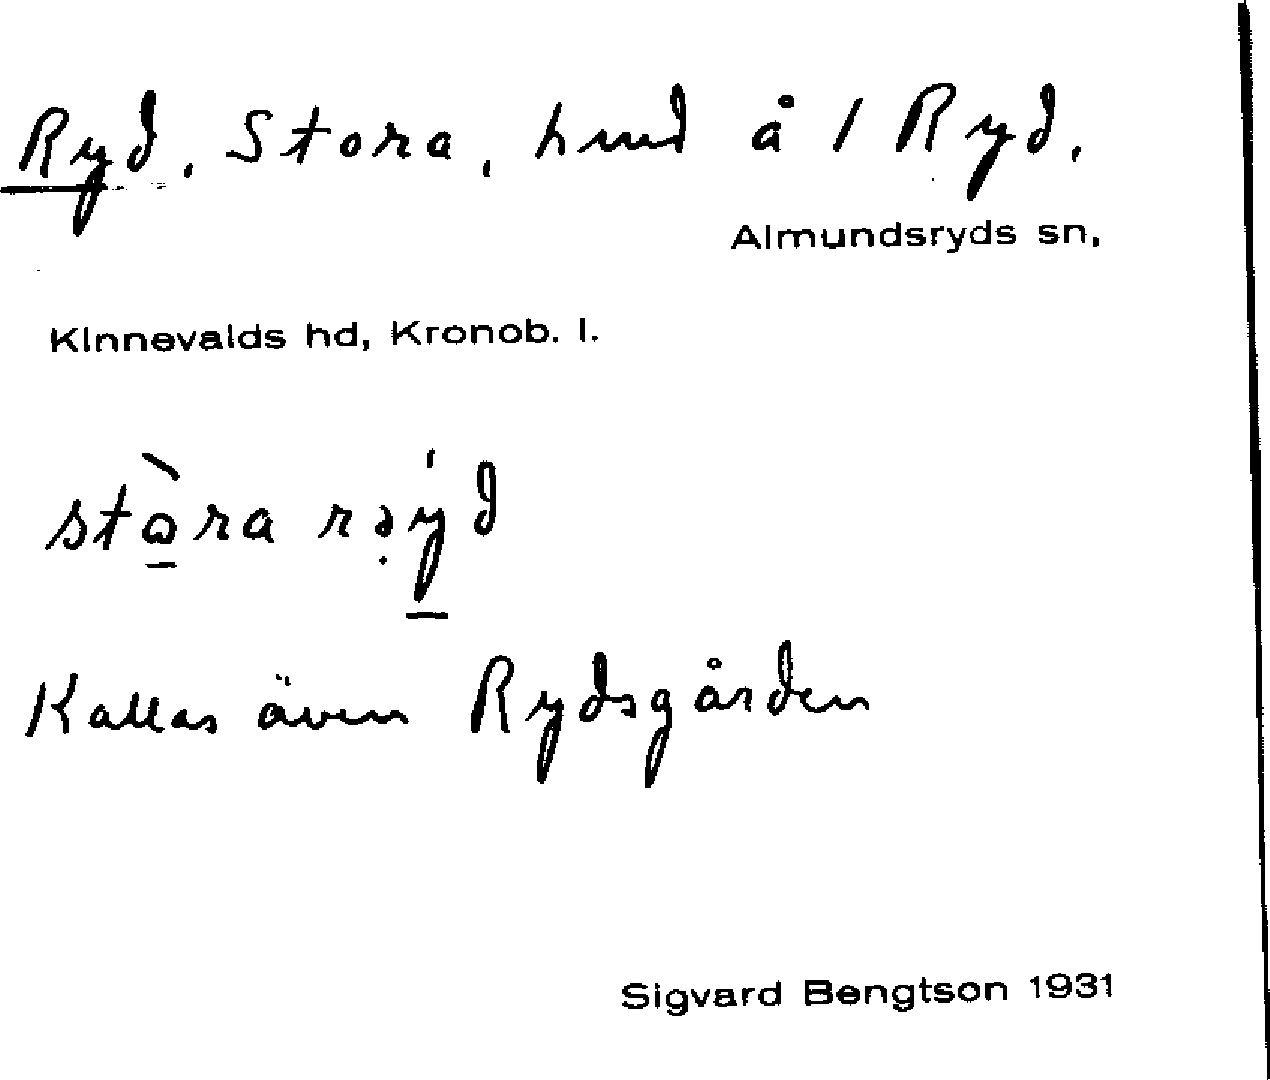 Ryd, Stora, hmd å 1 Ryd,
Almundsryds sn,
Kinnevalds hd, Kronob. l.
stò̱ra rə̣ý̱d
Kallas även Rydsgården
Sigvard Bengtson 1931